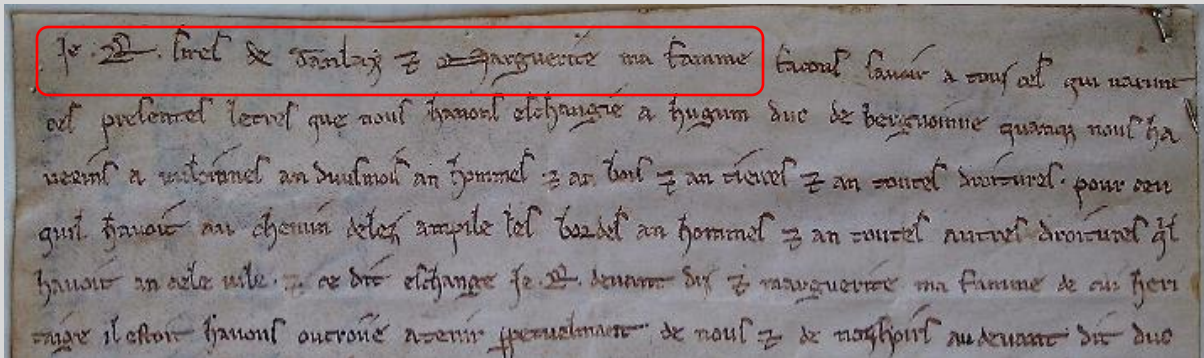 Je · R · sires de Saulax ⁊ Marguerite ma famme facons savoir a tous ces qui varunt
ces presentes letres que nous havons eschangié a hugum duc de berguoinne quanq nous ha
veiens a an duismois an hommes ⁊ an bois ⁊ an tierres ⁊ an toutes droitures · pour ceu
quil havoit au chemin delez ampile les bordes an hommes ⁊ an toutes autres droitures ql
havoit an cele vile · ⁊ ce dit eschange Je · R · devant dix ⁊ marguerite ma famme de cui heri
taige il estoit havons outroié a tenir ppetuelmant de nous ⁊ de noz hoirs au devant dit duc